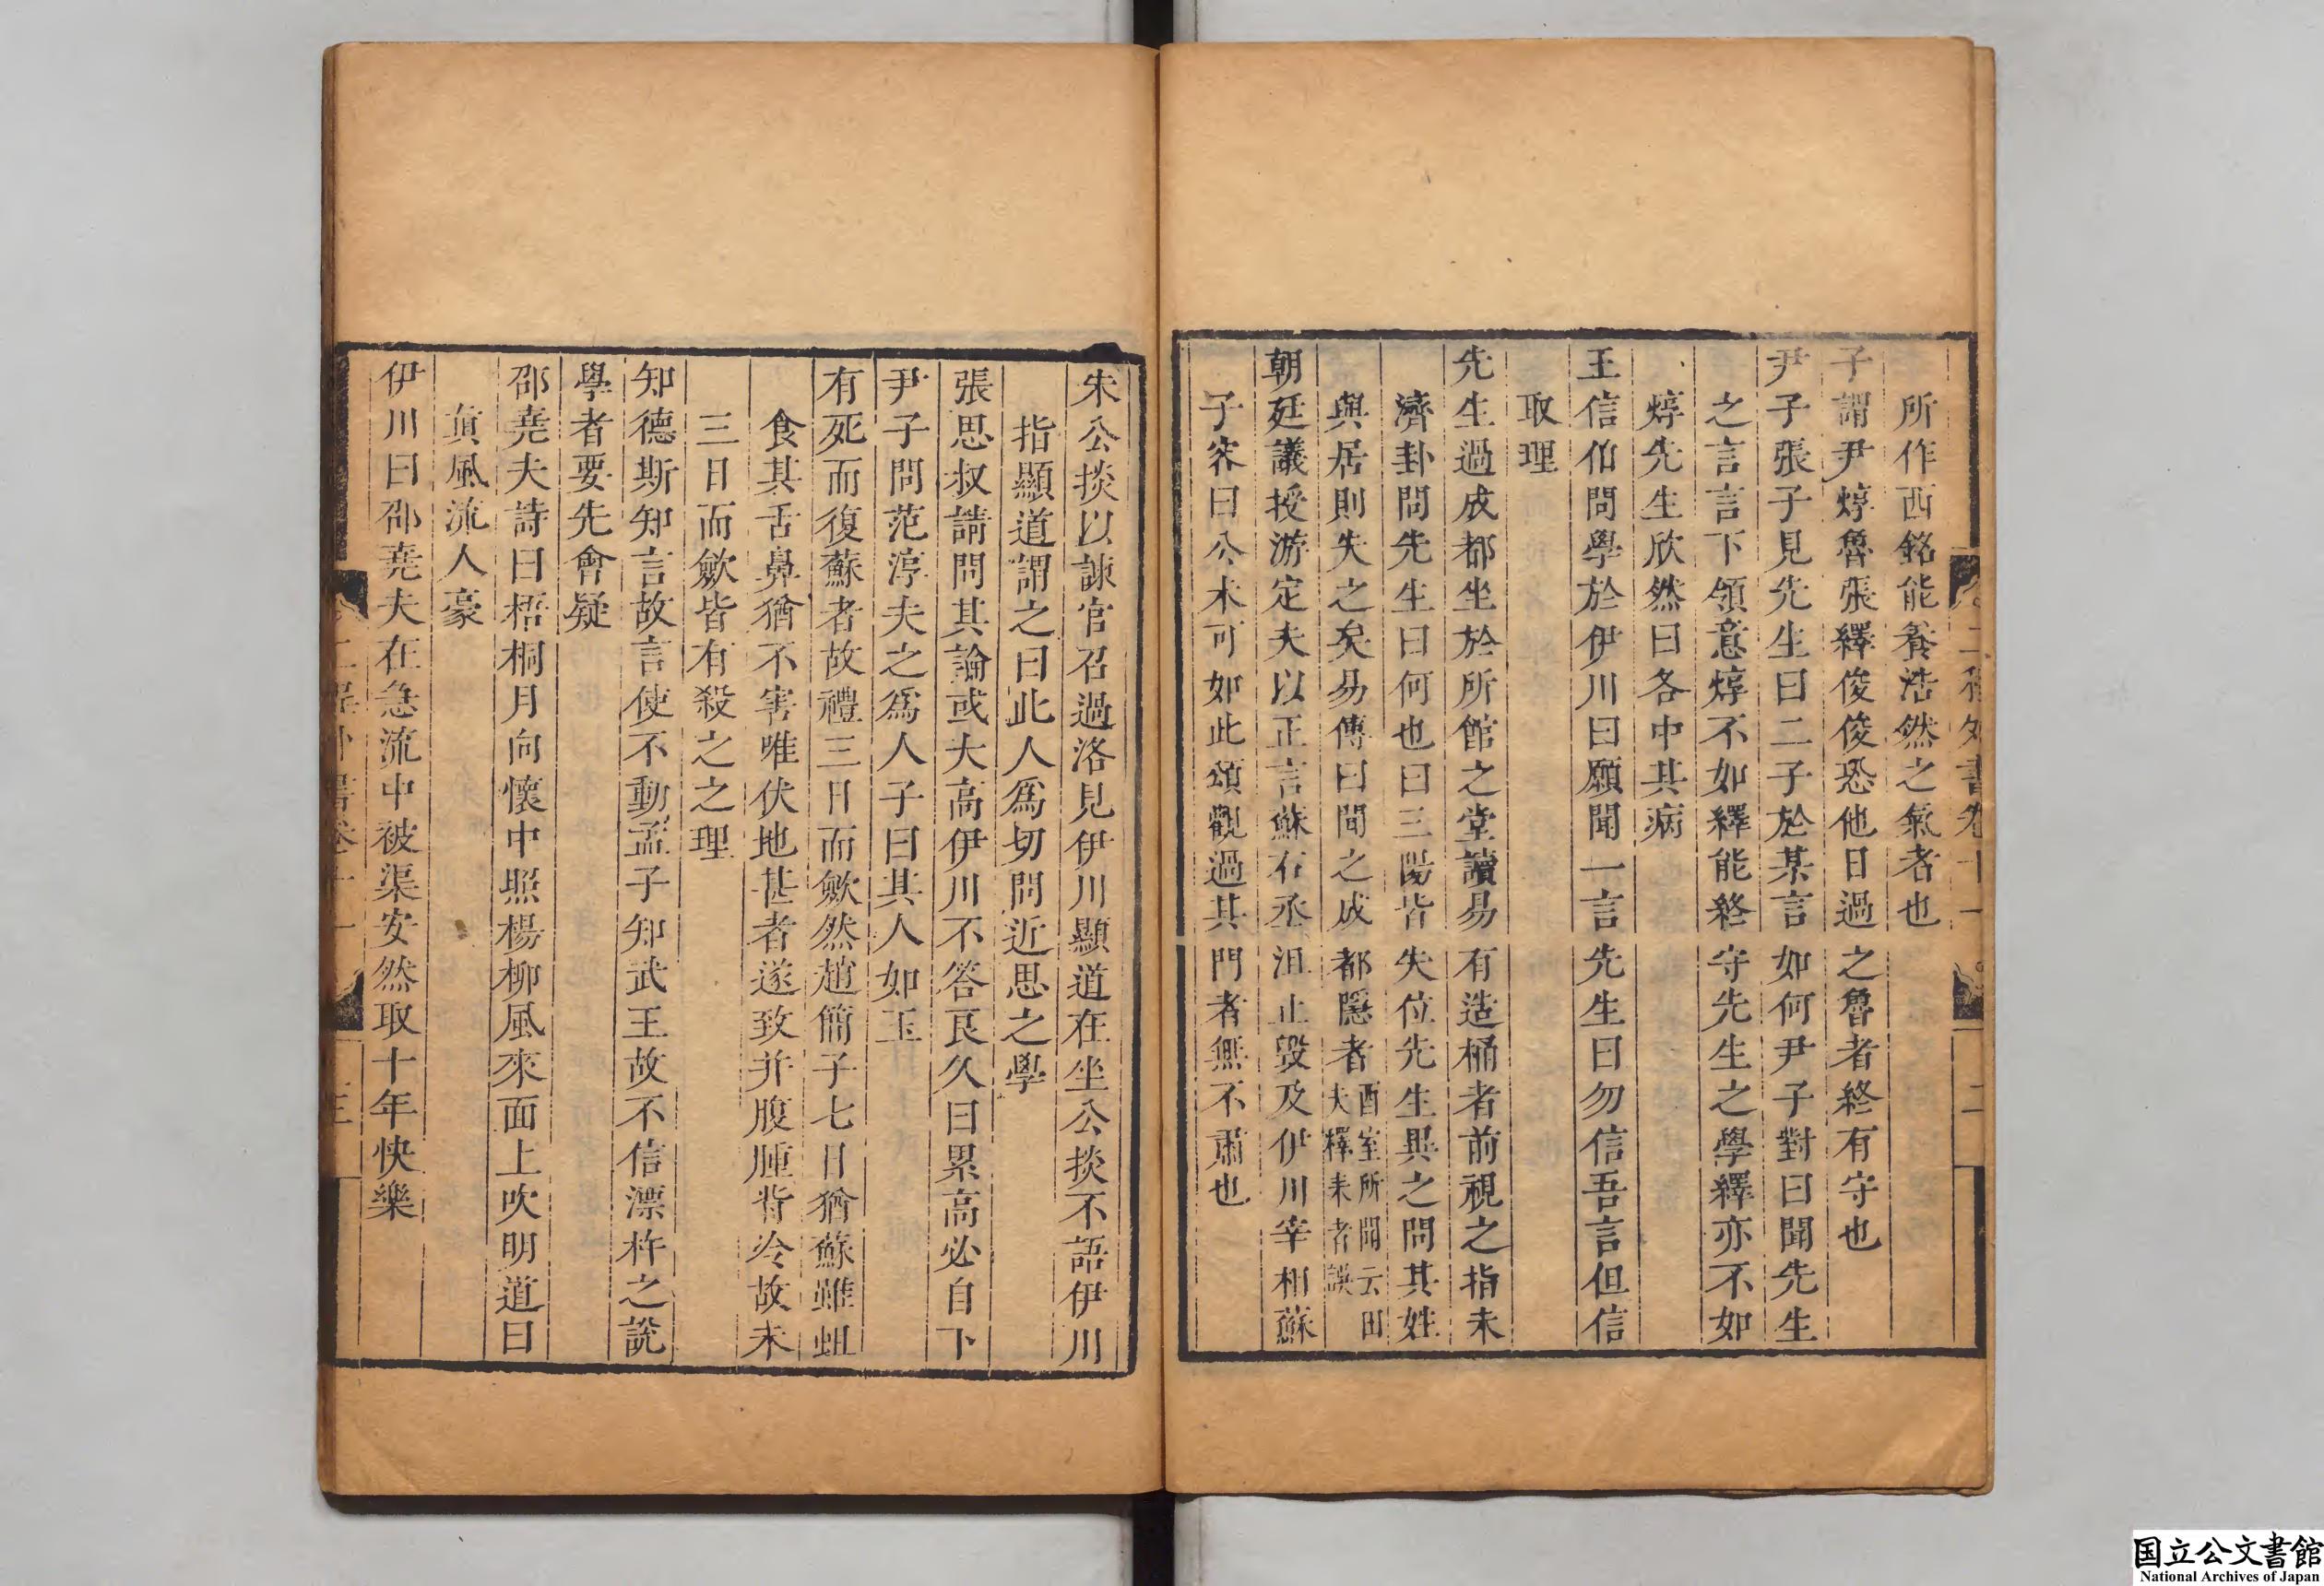 所作西銘能養浩然之氣者也
子謂尹焞魯張繹俊俊恐他日過之魯者終有守也
尹子張子見先生曰二子於某言如何尹子對曰聞先生
之言言下領意焞不如繹能終守先生之學繹亦不如
焞先生欣然曰各中其病
王信伯問學於伊川曰願聞一言先生曰勿信吾言但信
取理
先生過成都坐於所館之堂讀易有造桶者前視之指未
濟卦問先生曰何也曰三陽皆失位先生異之問其姓
與居則失之矣易傳曰聞之成都隱者
酉室所聞云田
夫釋耒者誤
朝廷議授游定夫以正言蘇右丞沮止毀及伊川宰相蘇
子容曰公未可如此頌觀過其門者無不肅也
二程外書卷十一
二
朱公掞以諫官召過洛見伊川顯道在坐公掞不語伊川
指顯道謂之曰此人爲切問近思之學
張思叔請問其論或大高伊川不答良久曰累高必自下
尹子問范淳夫之爲人子曰其人如玉
有死而復蘇者故禮三日而歛然趙簡子七日猶蘇雖蛆
食其舌鼻猶不害唯伏地甚者遂致并腹腫背冷故未
三日而歛皆有殺之之理
知德斯知言故言使不動孟子知武王故不信漂杵之說
學者要先會疑
邵堯夫詩曰梧桐月向懷中照楊柳風來面上吹明道曰
眞風流人豪
伊川曰邵堯夫在急流中被渠安然取十年快樂
二程外書卷十一
三
国立公文書館
National Archives of Japan